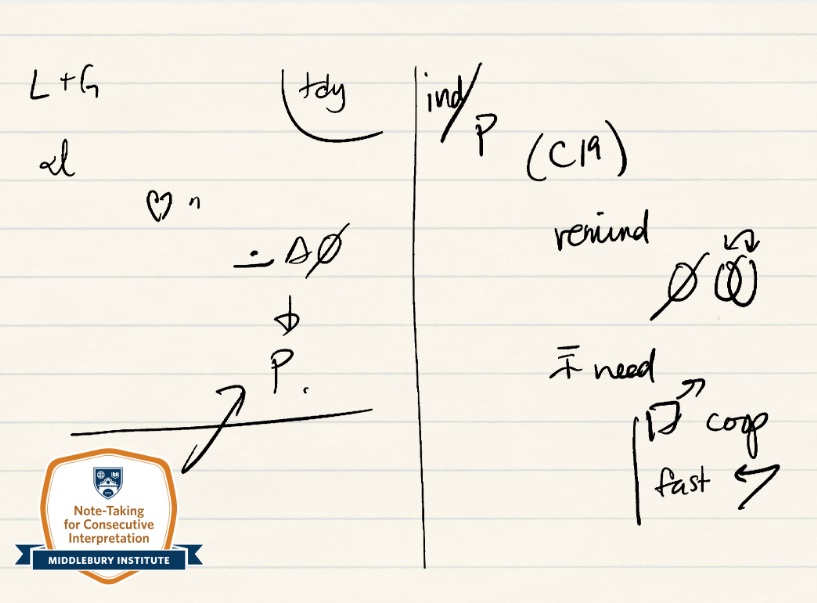 L + G
tdy
n
P.
ind/
P
(C19)
remind
need
coop
fast
Note-Taking
for Consecutive
Interpretation
MIDDLEBURY INSTITUTE